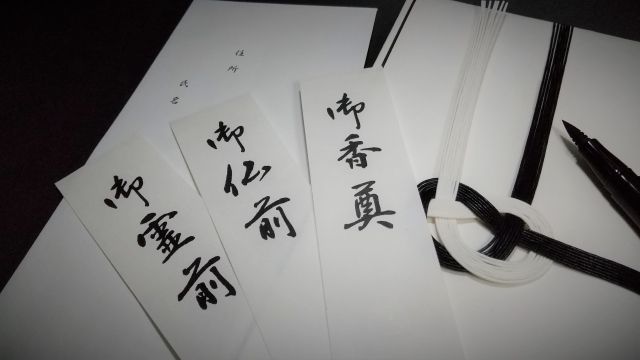 御霊前
御仏前
御香奠
住所
氏名